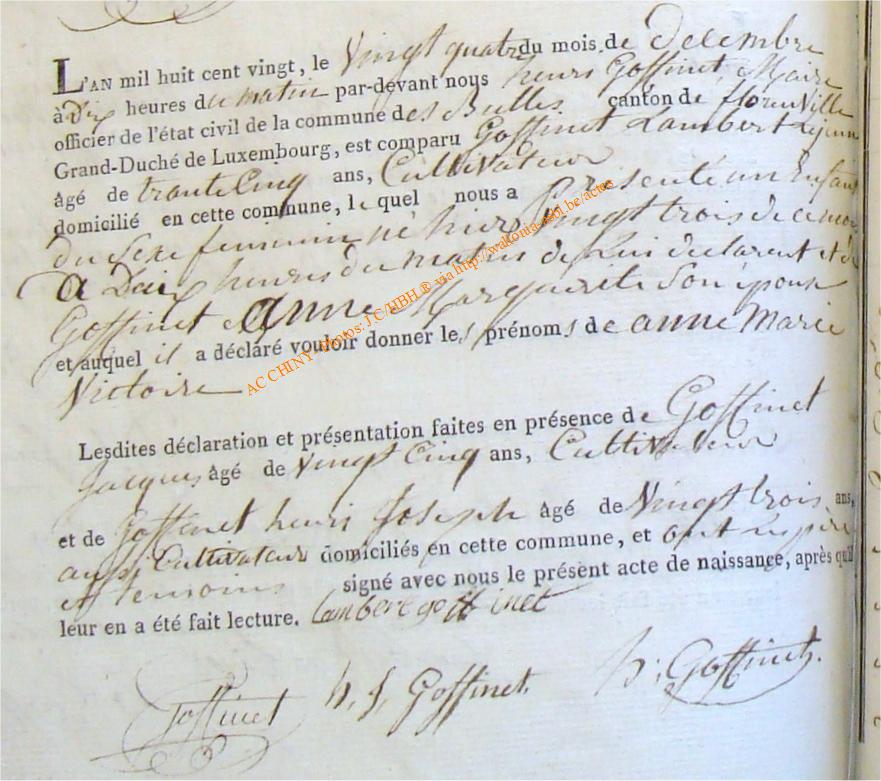 L'AN mil huit cent vingt, le Vingt quatre du mois de decembre
à Dix heures du matin par-devant nous henri Goffinet, Maire
officier de l'état civil de la commune des Bulles canton de florenville
Grand-Duché de Luxembourg, est comparu Goffinet Lambert
âgé de trante Cinq ans, Cultivateur
domicilié en cette commune, le quel nous a presenté un Enfant
du Sexe feminin né hier Vingt trois de ce mois
a Dix heures du matin de Lui declarent et de
Goffinet Anne Marguerite Son épouse
et auquel il a déclaré vouloir donner les prénoms de anne Marie
Victoire
AC CHINY - Photos: J.C/HBH.® via http://wakonia-asbl.be/actes
Lesdites déclaration et présentation faites en présence de Goffinet
Jacques âgé de Vingt Cinq ans, Cultivateur
et de Goffinet henri Joseph âgé de Vingt trois ans,
aussi Cultivateur domiciliés en cette commune, et ont les père
et temoins signé avec nous le présent acte de naissance, après qu'il
leur en a été fait lecture. Lambert goffinet
Goffinet h, J, Goffinet. h; Goffinet.